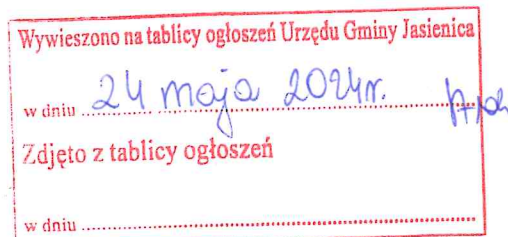 Wywieszono na tablicy ogłoszeń Urzędu Gminy Jasienica
w dniu 24 maja 2024r.
Zdjęto z tablicy ogłoszeń
w dniu